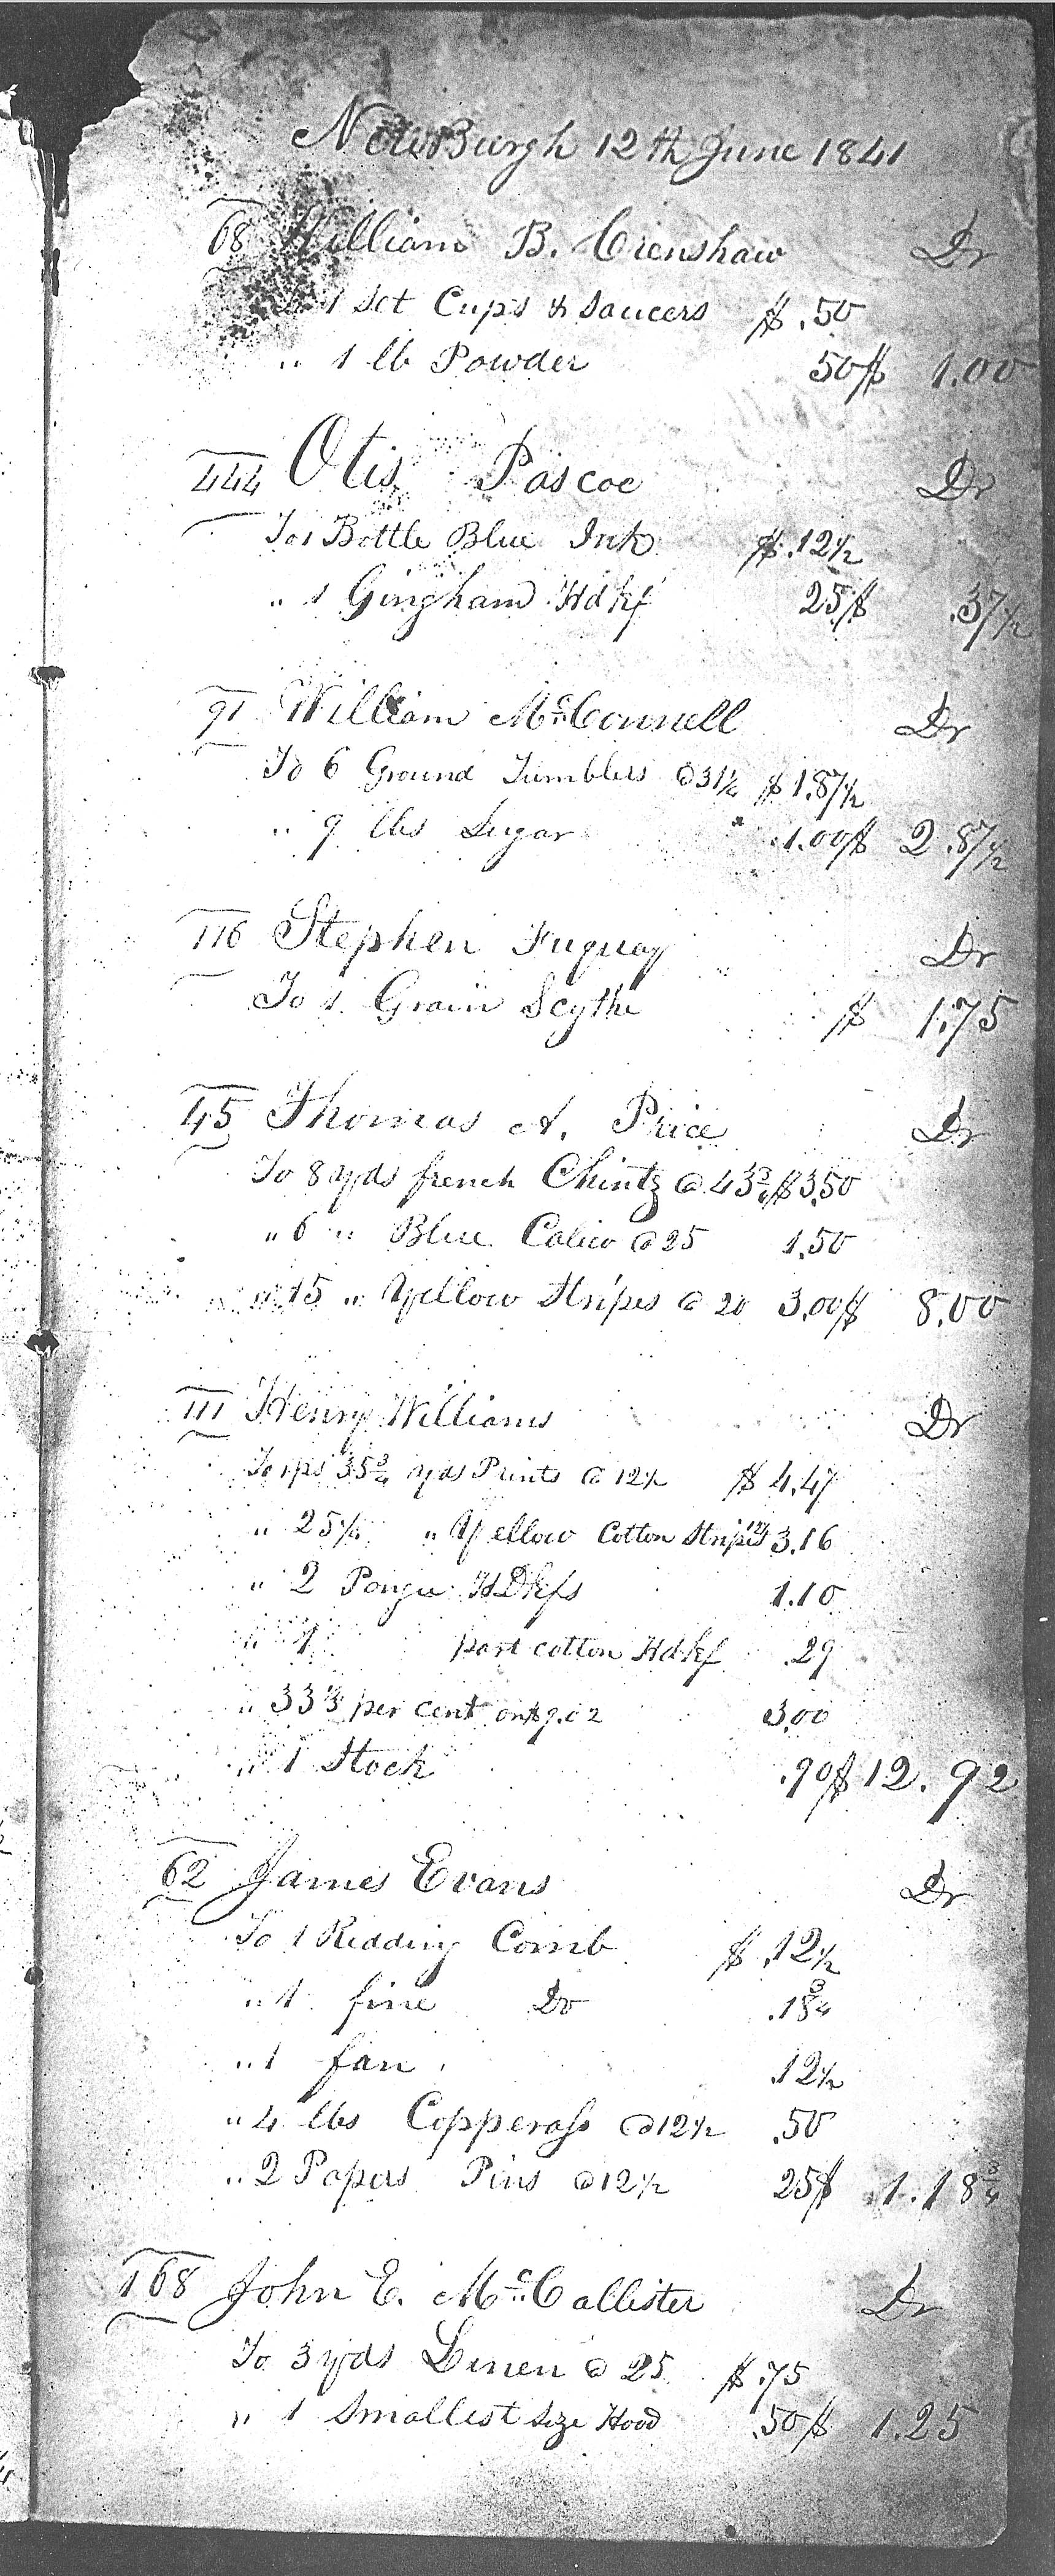 NewBurgh 12th June 1841
68 William B. Crenshaw Dr
To 1 Set Cups & Saucers $ .50
" 1 lb Powder 50 $ 1.00
444 Otis Pascoe Dr
To 1 Bottle Blue Ink $ .12½
" 1 Gingham Hdkf 25 $ .37½
91 William McConnell Dr
To 6 Ground Tumblers @ 31¼ $ 1.87½
" 9 lbs Sugar 1.00 $ 2.87½
116 Stephen Fuquay Dr
To 1 Grain Scythe $ 1.75
45 Thomas A. Price Dr
To 8 yds french Chintz @ 43¾ $ 3.50
" 6 " Blue Calico @ 25 1.50
" 15 " Yellow Stripes @ 20 3.00 $ 8.00
111 Henry Williams Dr
To 1 ps 35¾ yds Prints @ 12½ $ 4.47
" 25¼ " Yellow Cotton Stripes 12½ 3.16
" 2 Pongee HDkfs 1.10
" 1 part cotton Hdkf .29
" 33⅓ per cent on $9.02 3.00
" 1 Stock .90 $ 12.92
62 James Evans Dr
To 1 Redding Comb $ .12½
" 1 fine Do .18¾
" 1 fan .12½
" 4 lbs Copperass @ 12½ .50
" 2 Papers Pins @ 12½ 25 $ 1.18¾
168 John E. McCallister Dr
To 3 yds Linen @ 25 $ .75
" 1 Smallest Size Hood .50 $ 1.25